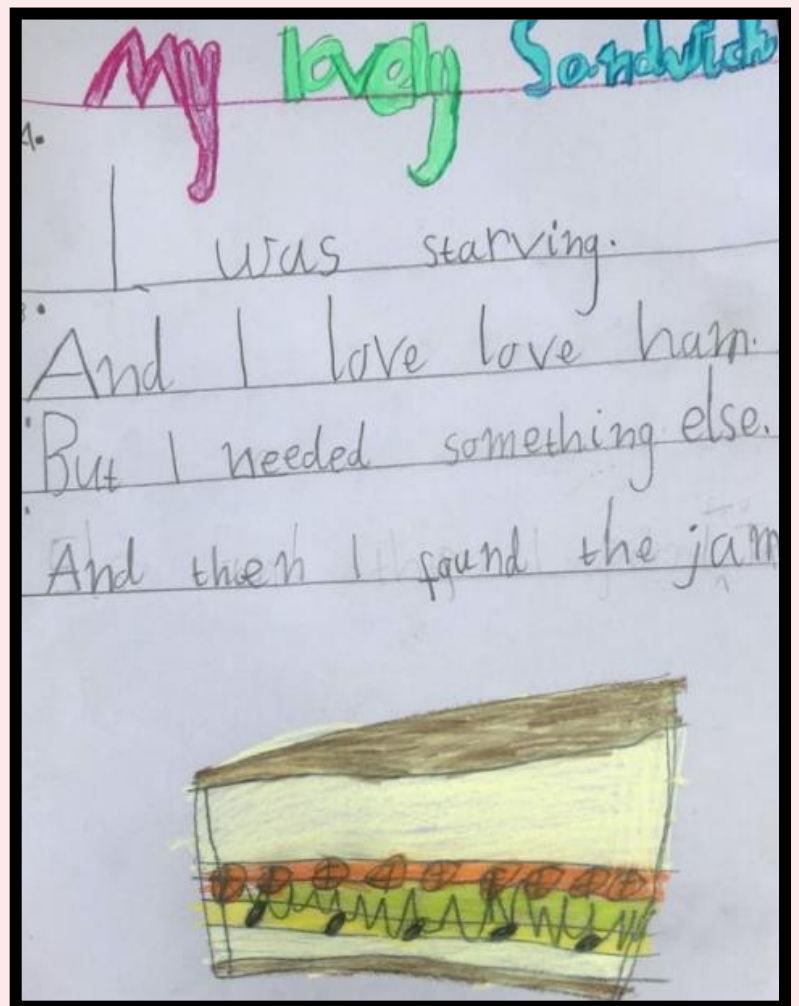 My lovely Sandwich
A.
I was starving.
B.
And I love love ham.
But I needed something else.
And then I found the jam